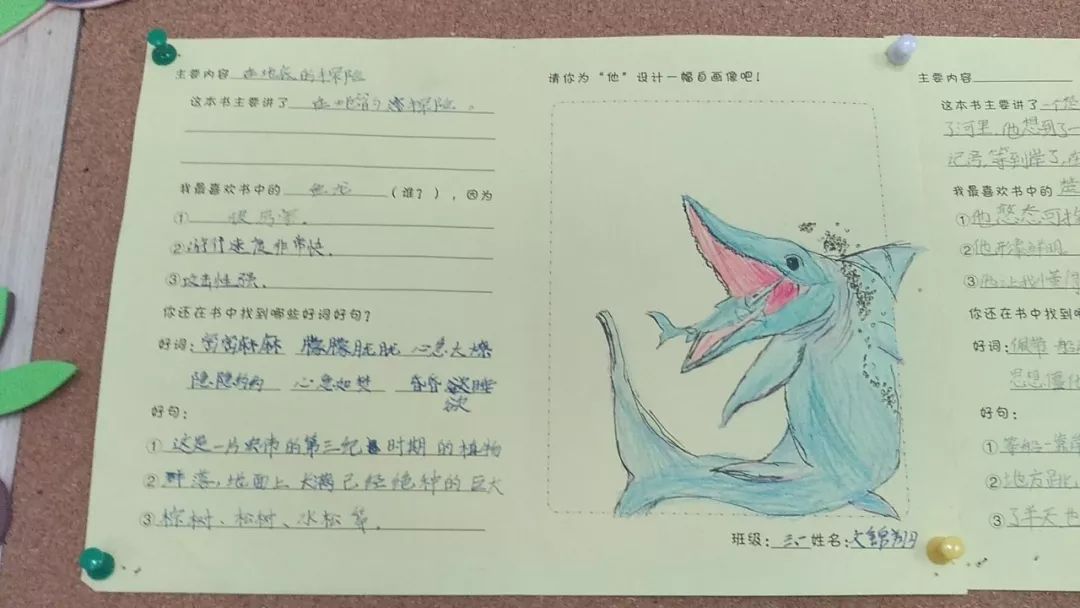 主要内容 在地底的探险
这本书主要讲了 在地 探险。
我最喜欢书中的 鱼龙 （谁？），因为
① 很厉害.
② 游行速度非常快.
③ 攻击性强.
你还在书中找到哪些好词好句？
好词: 密密麻麻 朦朦胧胧 心急火燎
隐隐约约 心急如焚 昏昏欲睡
欲
好句：
① 这是一片宏伟的第三纪 时期的植物
② 群落, 地面上长满已经绝种的巨大
③ 棕树、松树、水松等.
请你为“他”设计一幅自画像吧！
班级: 三一 姓名: 文锦
主要内容
这本书主要讲了 一个
了河里.他想到了一
记号,等到岸了,在
我最喜欢书中的
① 他憨态可
② 他形象鲜明
③ 他让我懂
你还在书中找到
好词: 佩带 船
思想僵
好句：
① 等船一靠
② 地方
③ 了半天也